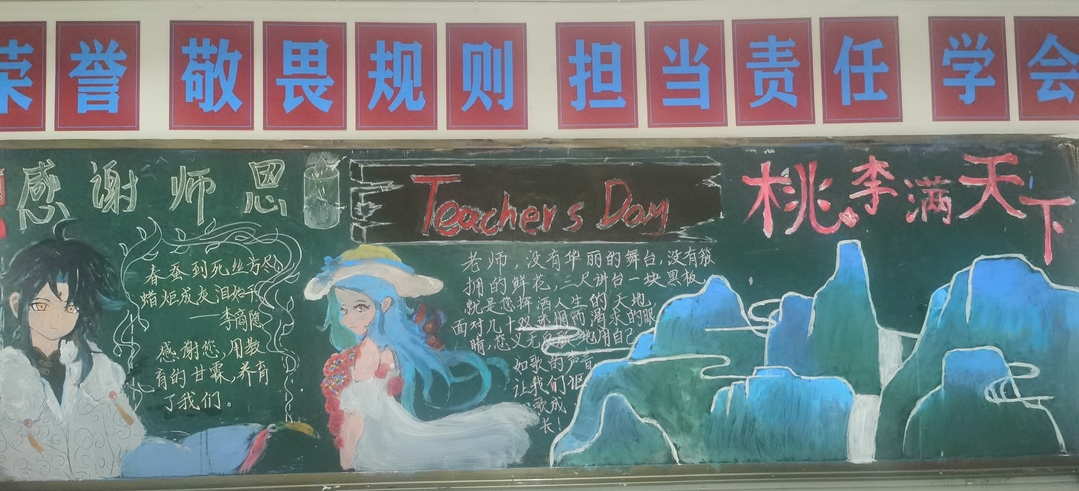 荣誉 敬畏规则 担当责任 学会
感谢师恩
Teachers Day
桃李满天下
春蚕到死丝方尽
蜡炬成灰泪始干
——李商隐
感谢您,用教
育的甘霖,养育
了我们。
老师,没有华丽的舞台,没有簇
拥的鲜花,三尺讲台一块黑板
就是您挥洒人生的天地,
面对几十双
而渴求的眼
睛,您义无
地用自己
如歌的声音
让我们
歌成
长!